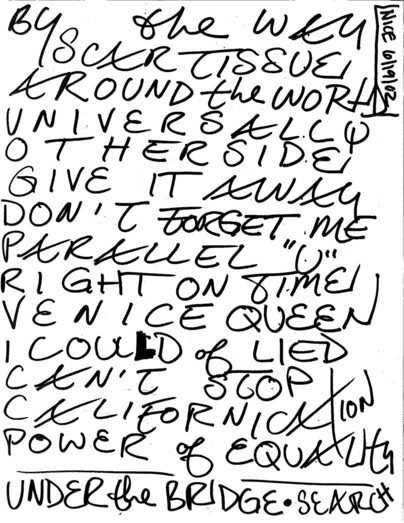 BY the WAY
NICE 6/19/02
SCAR TISSUE
AROUND the WORLD
UNIVERSALLY
OTHERSIDE
GIVE IT AWAY
DON'T FORGET ME
PARALLEL "U"
RIGHT ON TIME
VENICE QUEEN
I COULD of LIED
CAN'T STOP
CALIFORNICATION
POWER of EQUALITY
UNDER the BRIDGE • SEARCH